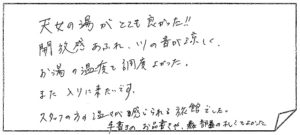 天女の湯がとても良かった!!
開放感あふれ、川の音が涼しく、
お湯の温度も調度よかった。
また入りに来たいです。
スタッフの方の温かさが感じられる旅館でした。
手書きのお品書きや、お部屋の